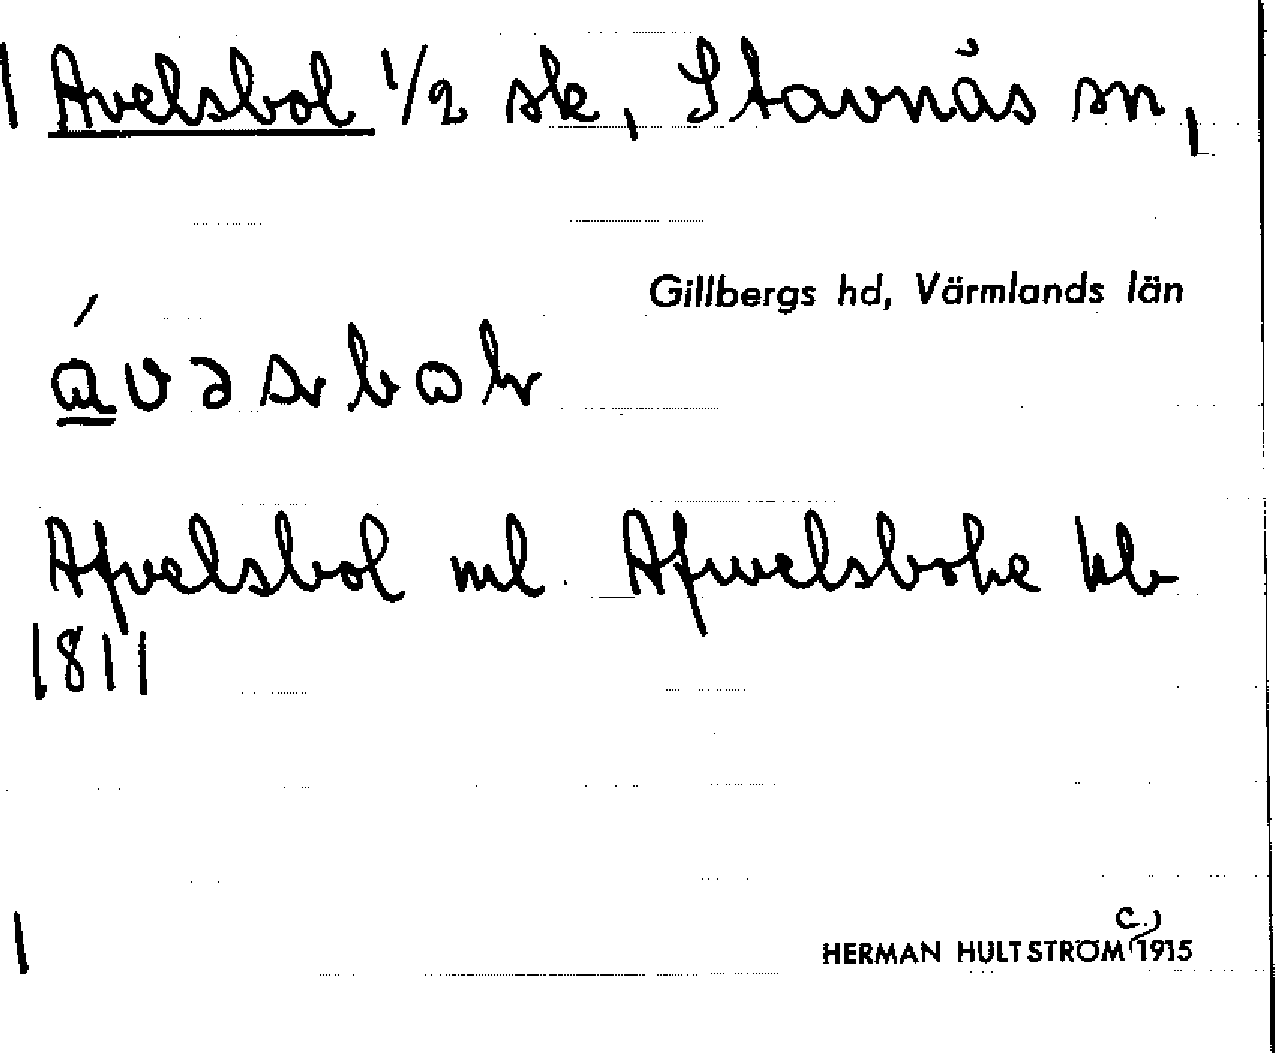 Avelsbol 1/2 sk, Stavnäs sn,
Gillbergs hd, Värmlands län
Afvelsbol ml. Afwelsbohe kb
1811
HERMAN HULTSTRÖM c.) 1915